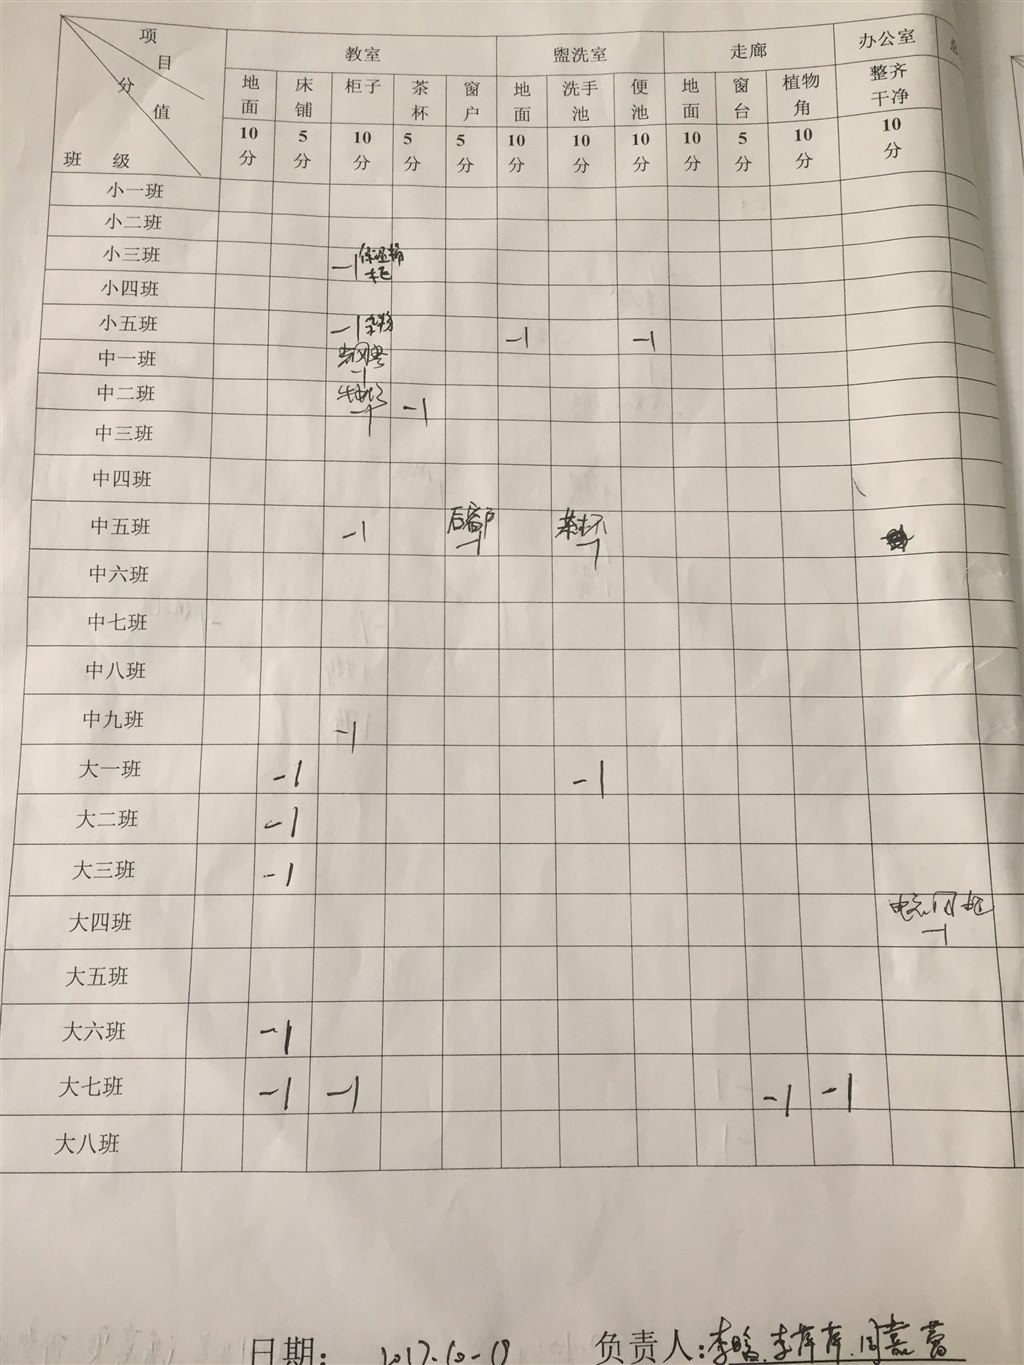 项目
分值
班级
教室 盥洗室 走廊 办公室
地面 床铺 柜子 茶杯 窗户 地面 洗手池 便池 地面 窗台 植物角 整齐干净
10分 5分 10分 5分 5分 10分 10分 10分 10分 5分 10分 10分
小一班
小二班
小三班 -1 保温桶柜
小四班
小五班 -1 杂物 -1 -1
中一班 -1
中二班 -1 -1
中三班
中四班
中五班 -1 后窗户 -1 茶杯 -1
中六班
中七班
中八班
中九班 -1
大一班 -1 -1
大二班 -1
大三班 -1
大四班 -1
大五班
大六班 -1
大七班 -1 -1 -1 -1
大八班
日期: 2017-10-19 负责人:李晗、李萍萍、周嘉蕾